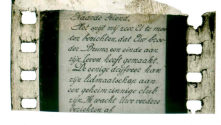 Waarde Heer,
Het spijt mij zeer U te moe-
ten berichten, dat Uw broe-
der Bruins, een einde aan
zijn leven heeft gemaakt.
De eenige drijfveer kan
zijn lidmaatschap aan
een geheimzinnige club
zijn. Ik wacht Uwe nadere
berichten af.